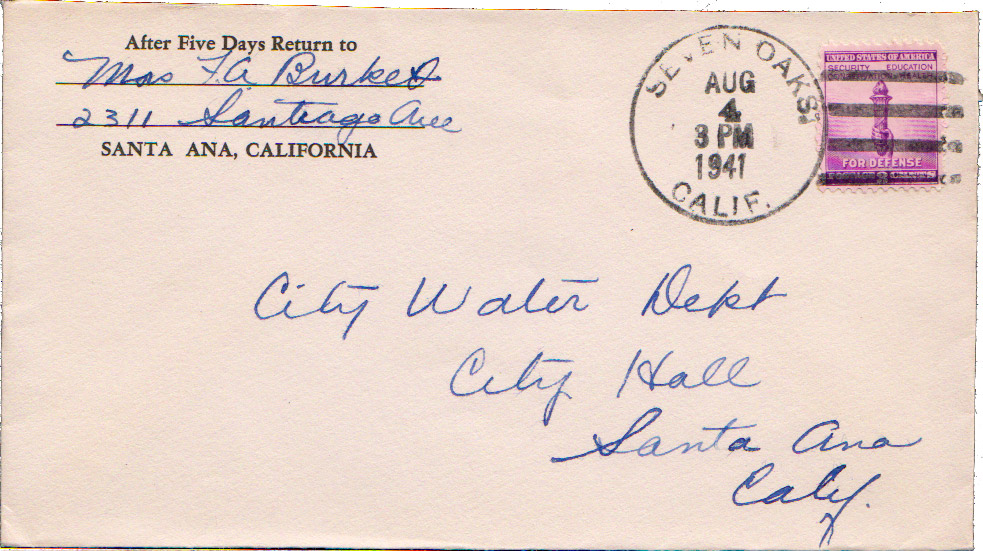 After Five Days Return to
Mrs F. A. Burket
2311 Santiago Ave
SANTA ANA, CALIFORNIA
SEVEN OAKS
AUG
4
3 PM
1941
CALIF.
UNITED STATES OF AMERICA
SECURITY EDUCATION
CONSERVATION HEALTH
FOR DEFENSE
3
City Water Dept
City Hall
Santa Ana
Calif.